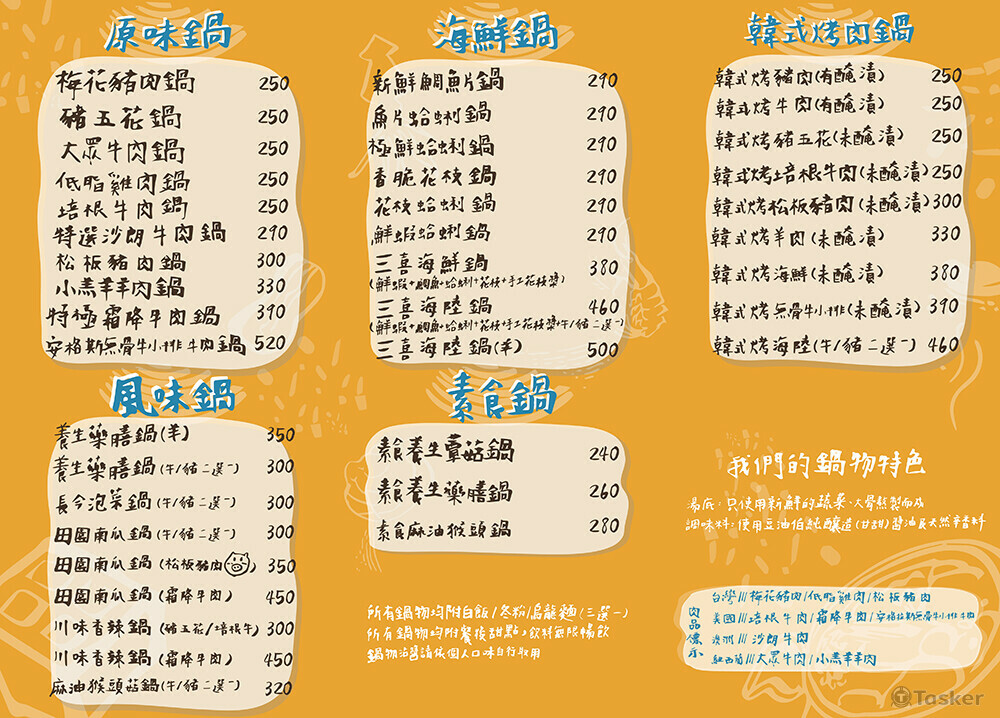 原味鍋
梅花豬肉鍋 250
豬五花鍋 250
大眾牛肉鍋 250
低脂雞肉鍋 250
培根牛肉鍋 250
特選沙朗牛肉鍋 290
松板豬肉鍋 300
小羔羊肉鍋 330
特極霜降牛肉鍋 390
安格斯無骨牛小排牛肉鍋 520
海鮮鍋
新鮮鯛魚片鍋 290
魚片蛤蜊鍋 290
極鮮蛤蜊鍋 290
香脆花枝鍋 290
花枝蛤蜊鍋 290
鮮蝦蛤蜊鍋 290
三喜海鮮鍋 380
(鮮蝦+鯛魚+蛤蜊+花枝+手工花枝漿)
三喜海陸鍋 460
(鮮蝦+鯛魚+蛤蜊+花枝+手工花枝漿+牛/豬二選一)
三喜海陸鍋(羊) 500
韓式烤肉鍋
韓式烤豬肉(有醃漬) 250
韓式烤牛肉(有醃漬) 250
韓式烤豬五花(未醃漬) 250
韓式烤培根牛肉(未醃漬) 250
韓式烤松板豬肉(未醃漬) 300
韓式烤羊肉(未醃漬) 330
韓式烤海鮮(未醃漬) 380
韓式烤無骨牛小排(未醃漬) 390
韓式烤海陸(牛/豬二選一) 460
風味鍋
養生藥膳鍋(羊) 350
養生藥膳鍋(牛/豬二選一) 300
長今泡菜鍋(牛/豬二選一) 300
田園南瓜鍋(牛/豬二選一) 300
田園南瓜鍋(松板豬肉) 350
田園南瓜鍋(霜降牛肉) 450
川味香辣鍋(豬五花/培根牛) 300
川味香辣鍋(霜降牛肉) 450
麻油猴頭菇鍋(牛/豬二選一) 320
素食鍋
素食養生蕈菇鍋 240
素食養生藥膳鍋 260
素食麻油猴頭鍋 280
所有鍋物均附白飯/冬粉/烏龍麵(三選一)
所有鍋物均附餐後甜點,飲料無限暢飲
鍋物沾醬請依個人口味自行取用
我們的鍋物特色
湯底:只使用新鮮的蔬果、大骨熬製而成
調味料:使用豆油伯純釀造(甘甜)醬油及天然辛香料
肉品標示
台灣///梅花豬肉/低脂雞肉/松板豬肉
美國///培根牛肉/霜降牛肉/安格拉斯無骨牛小排牛肉
澳洲///沙朗牛肉
紐西蘭///大眾牛肉/小羔羊肉
Tasker